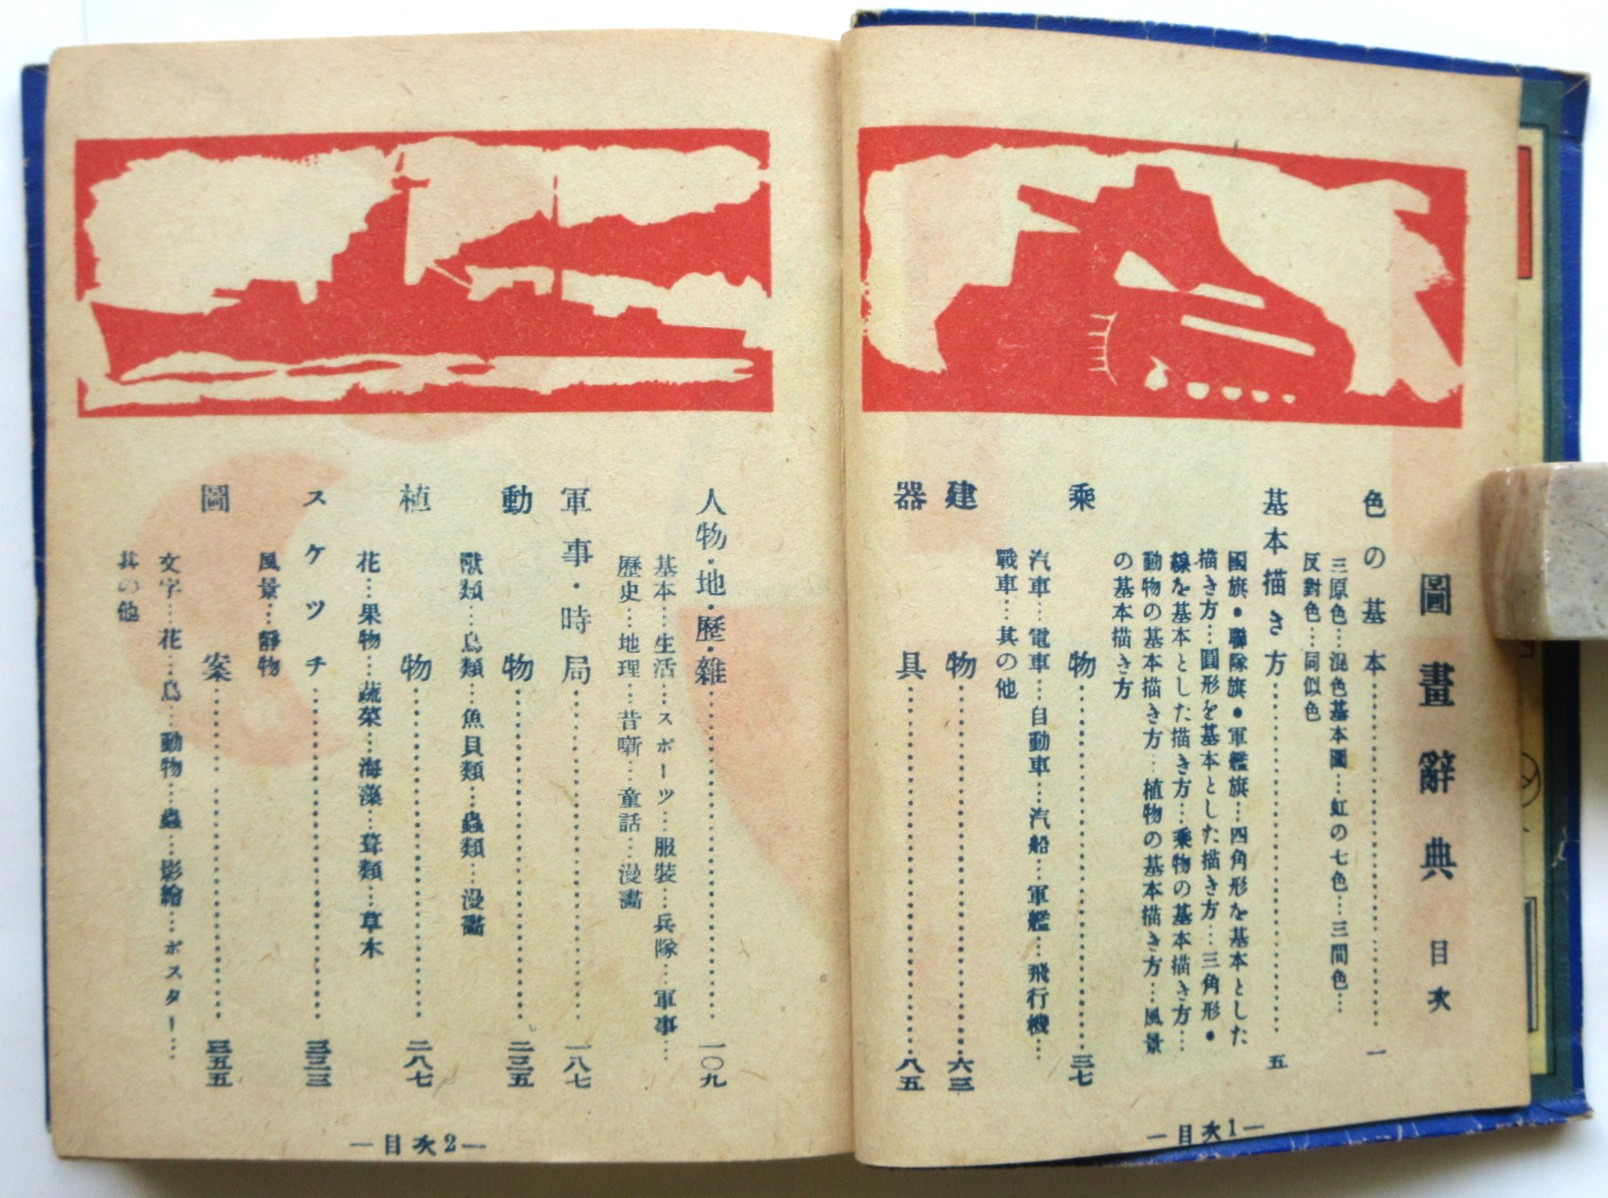 圖畫辭典 目次
色の基本……一
三原色…混色基本圖…虹の七色…三間色…
反對色…同似色
基本描き方……五
國旗・聯隊旗・軍艦旗…四角形を基本とした
描き方…圓形を基本とした描き方…三角形・
線を基本とした描き方…乘物の基本描き方…
動物の基本描き方…植物の基本描き方…風景
の基本描き方
乘物……三七
汽車…電車…自動車…汽船…軍艦…飛行機…
戰車…其の他
建物……六三
器具……八五
―目次1―
人物・地・歷・雜……一〇九
基本…生活…スポーツ…服裝…兵隊…軍事…
歷史…地理…昔噺…童話…漫畵
軍事・時局……一八七
動物……二三五
獸類…鳥類…魚貝類…蟲類…漫畵
植物……二八七
花…果物…蔬菜…海藻…茸類…草木
スケッチ……三三三
風景…靜物
圖案……三五五
文字…花…鳥…動物…蟲…影繪…ポスター…
其の他
―目次2―